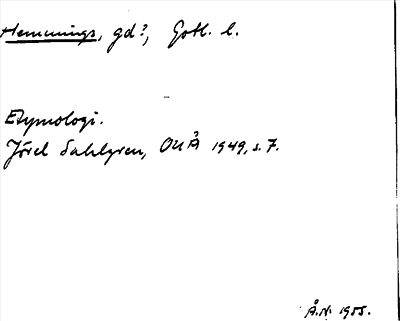 Hemmings, gd?, Gotl. l.
Etymologi.
Jöret Sahlgren, OUÅ 1949, s. 7.
Å.N. 1955.